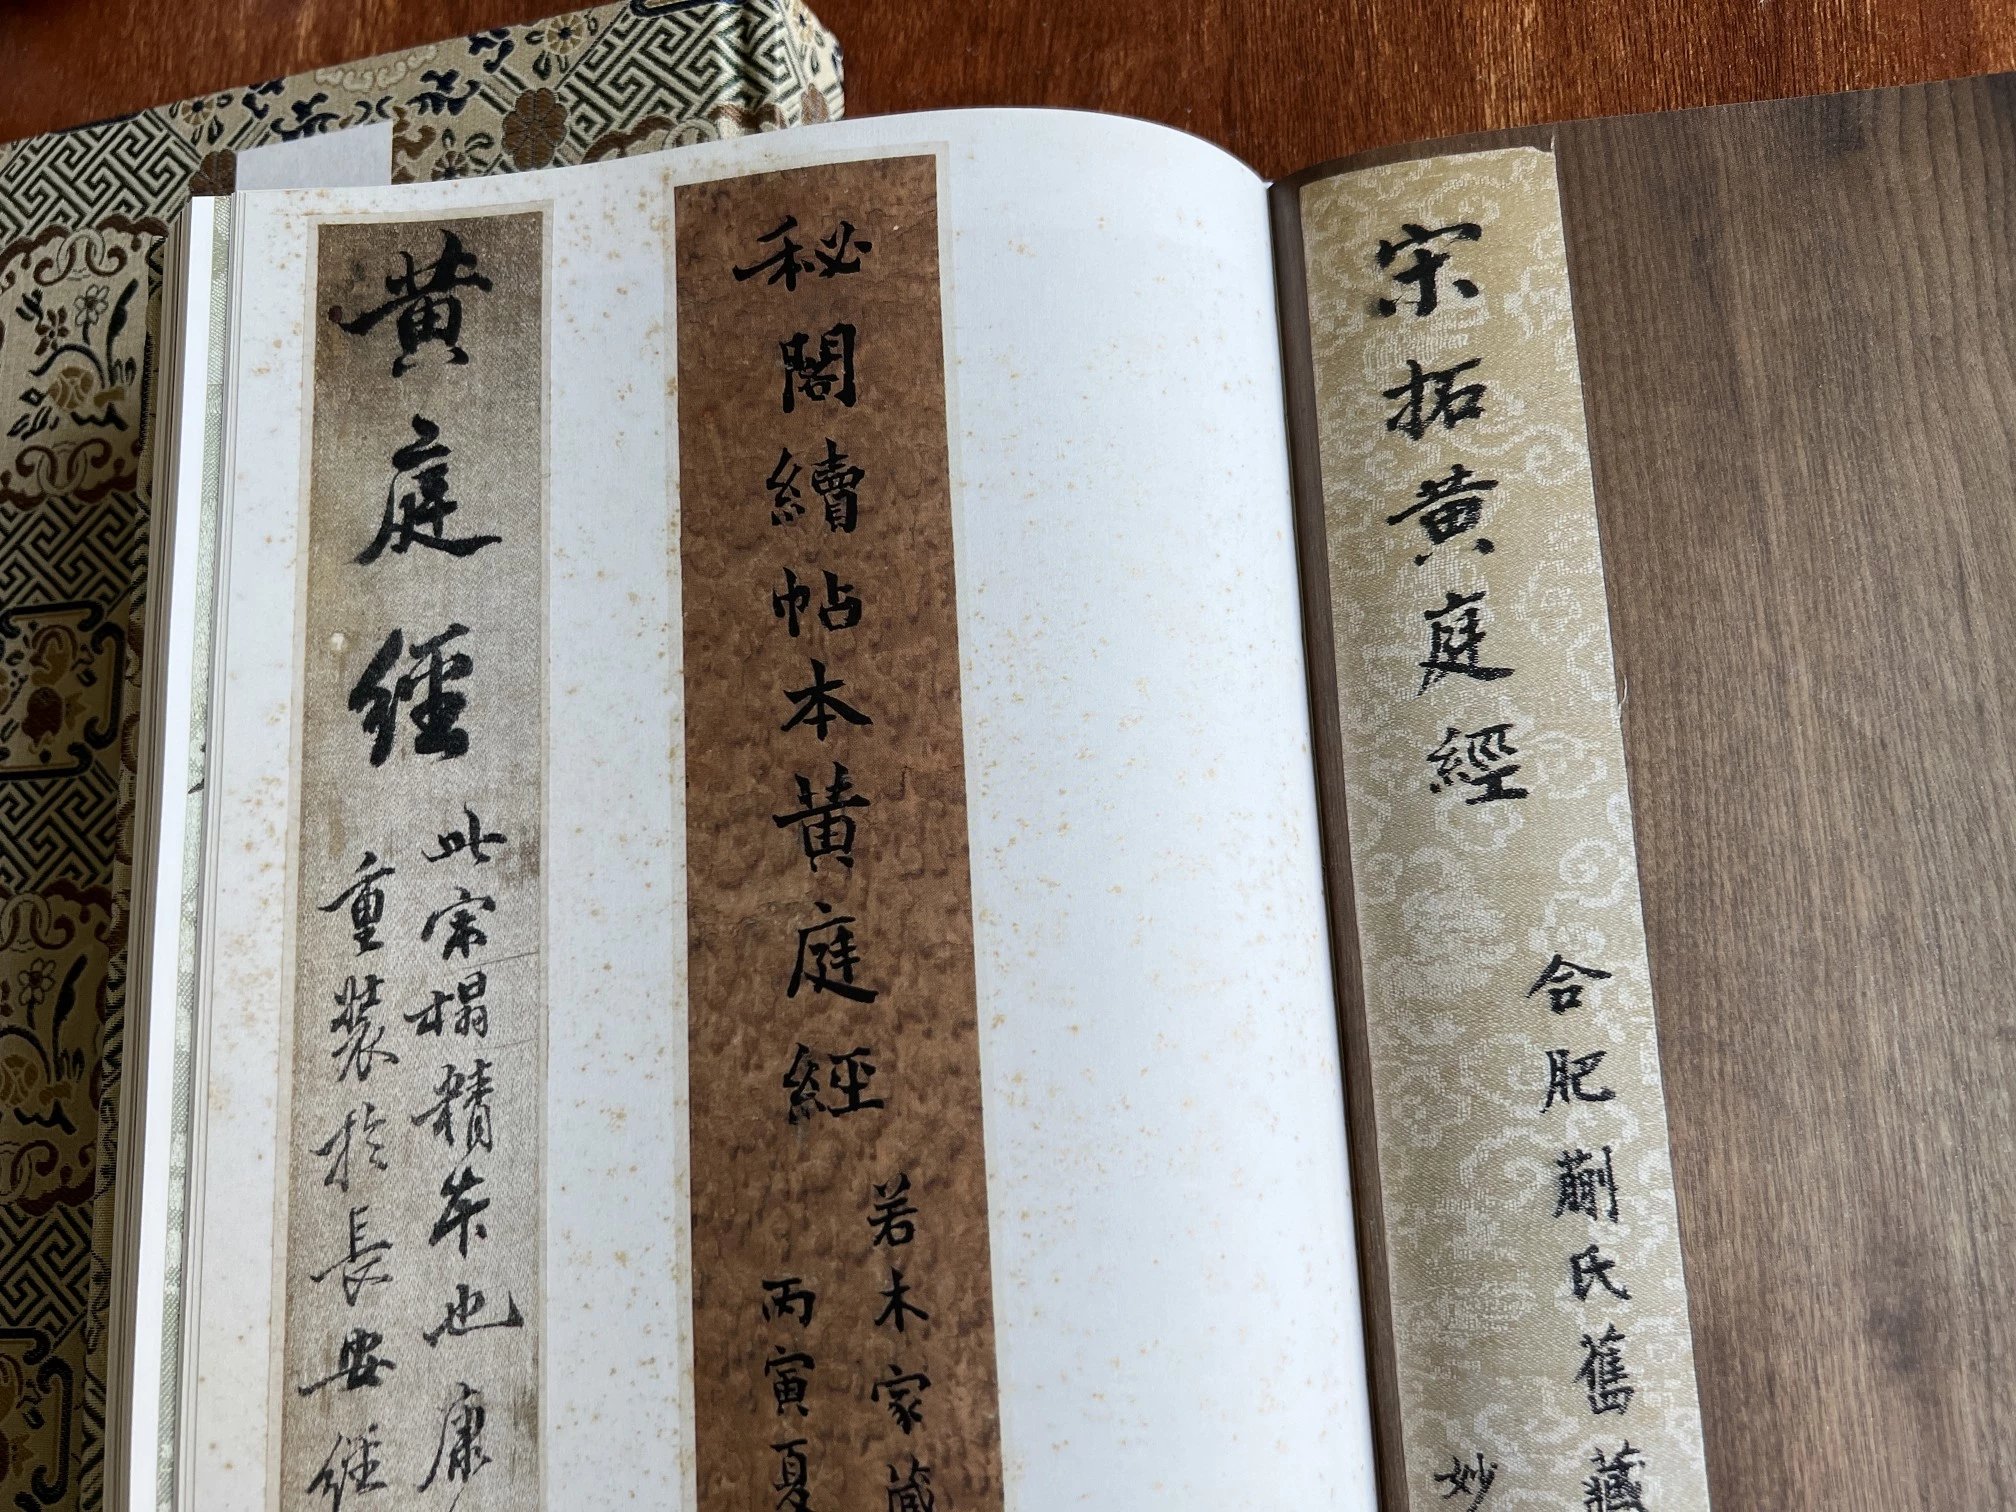 宋拓黄庭經
合肥蒯氏舊藏
妙
秘閣續帖本黄庭經
若木家藏
丙寅夏
黄庭經
此宋榻精本也康
重裝於長安經